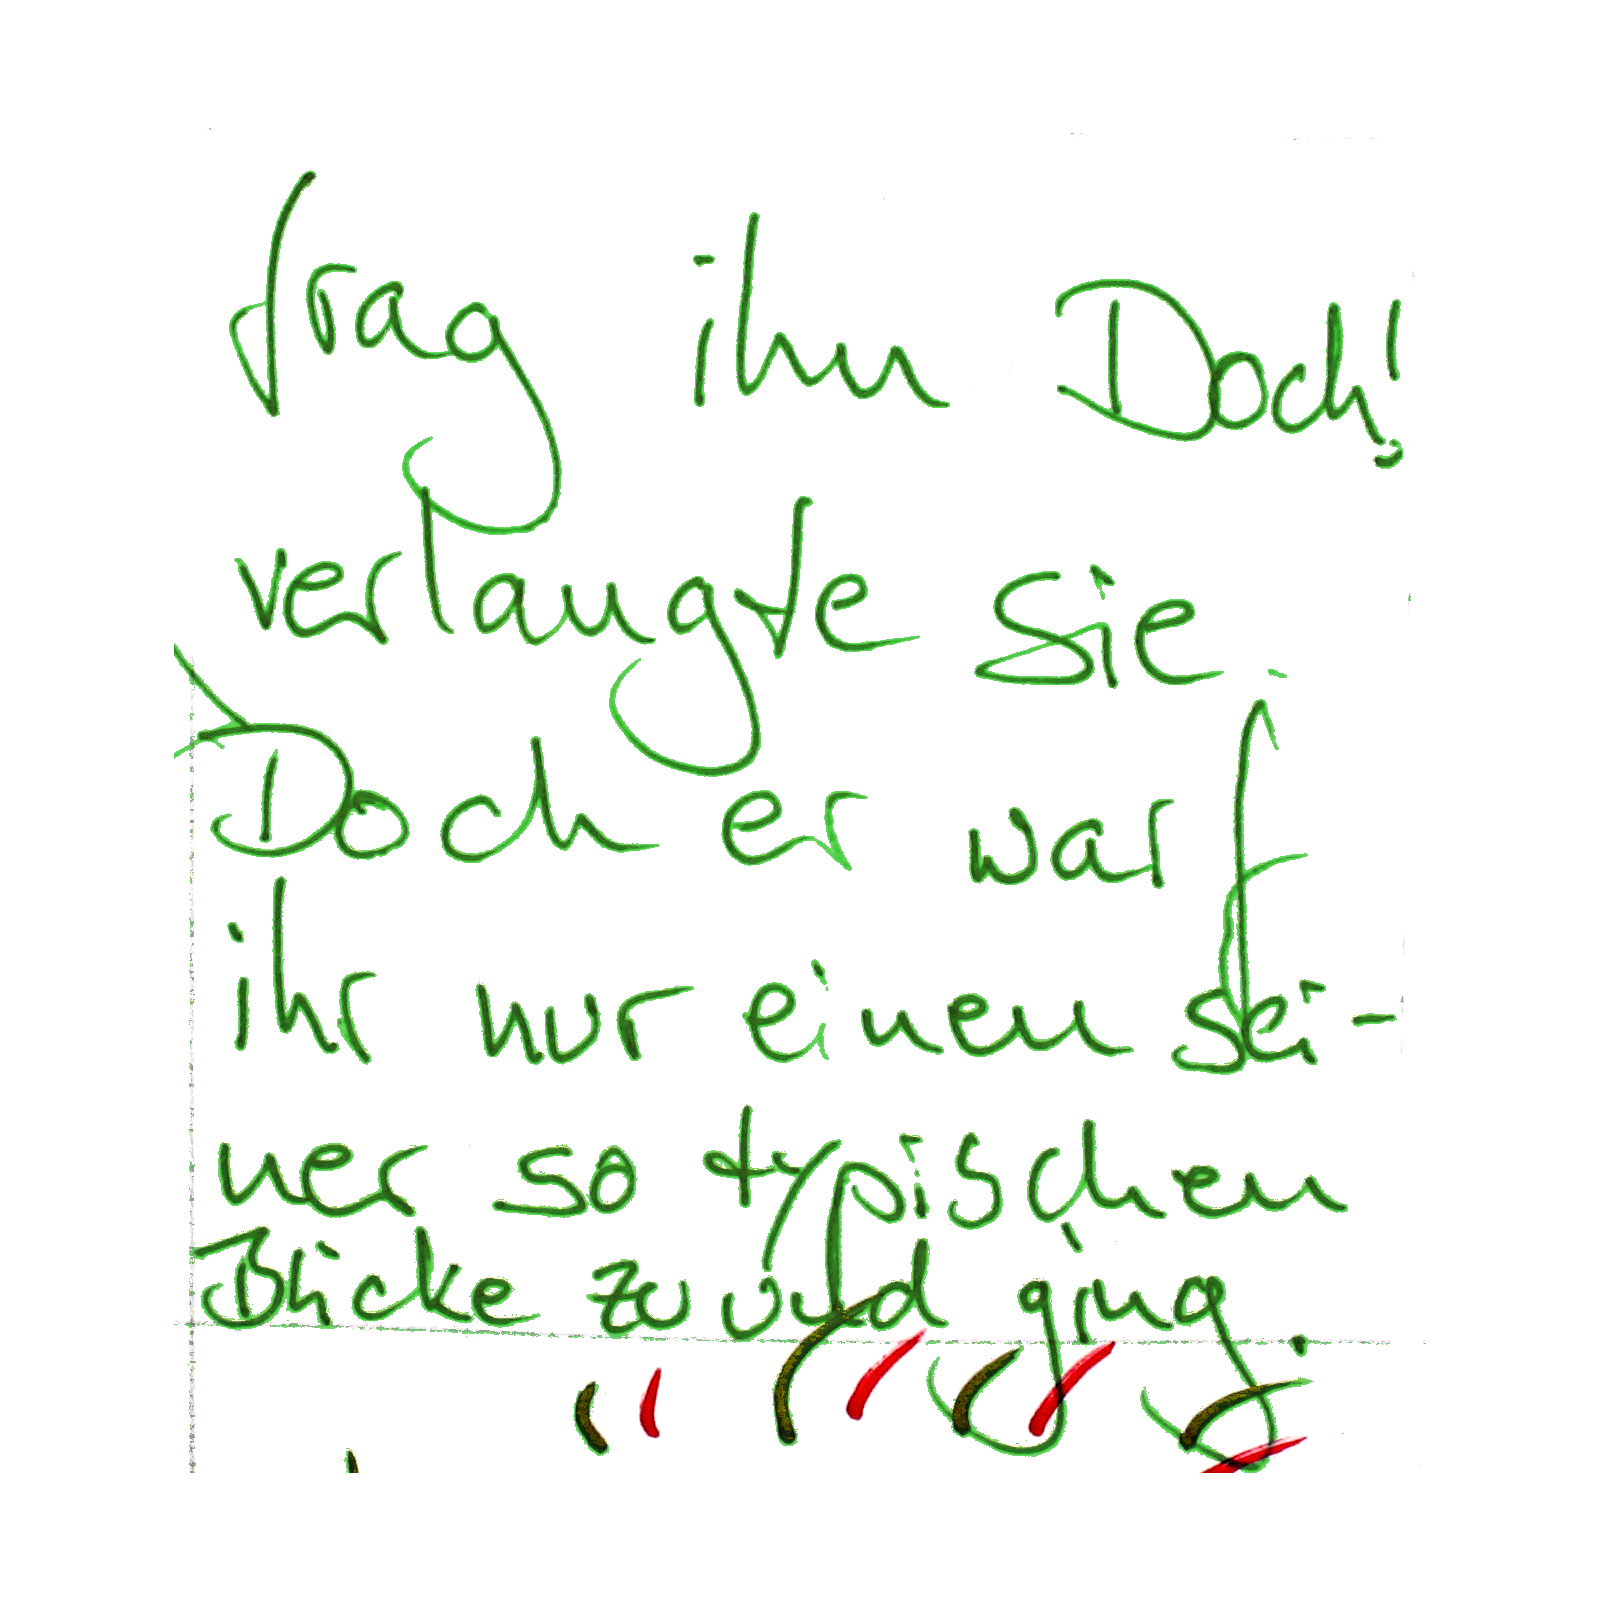 frag ihn Doch!
verlangte sie.
Doch er warf
ihr nur einen sei-
ner so typischen
Blicke zu und ging.